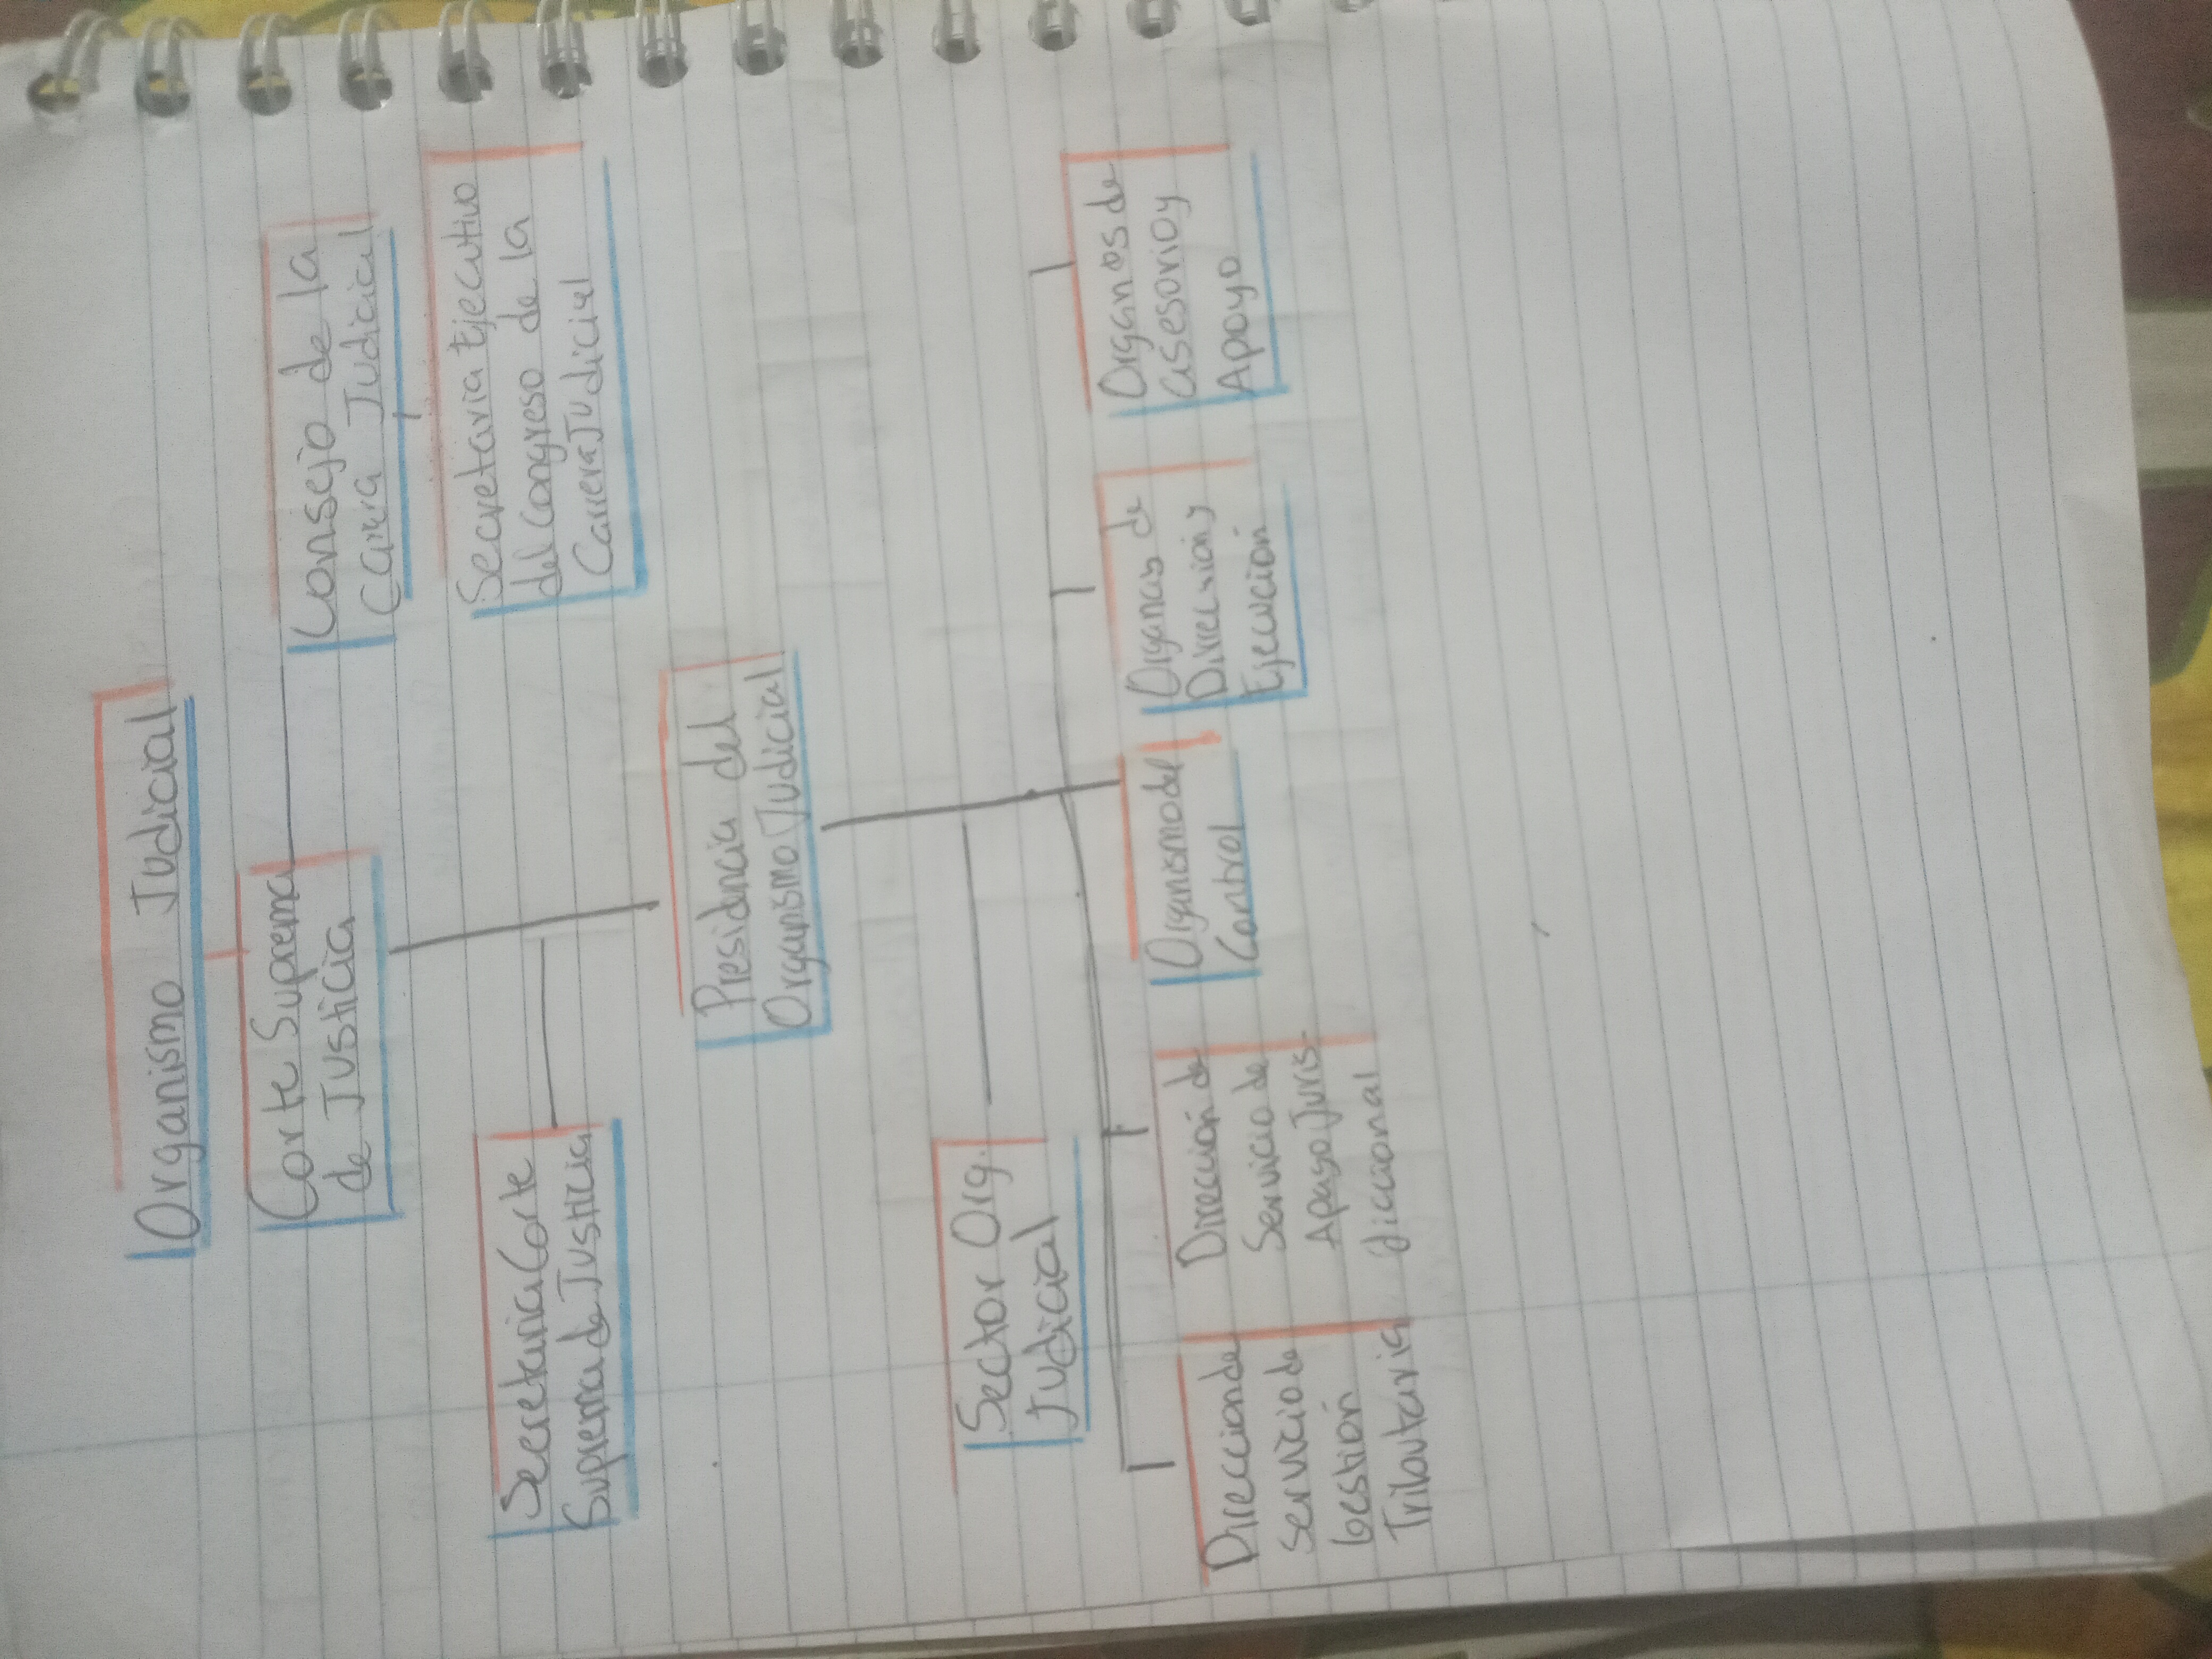 Organismo Judicial
Corte Suprema
de Justicia
Consejo de la
Carra Judicial
Secretaria Ejecutivo
del Congreso de la
Carrera Judicial
Secretaria Corte
Suprema de Justicia
Presidencia del
Organismo Judicial
Sector Org.
Judicial
Direccion de
Servicio de
Gestión
Tributaria
Dirección de
Servicio de
Apoyo Juris-
diccional
Organismo del
Control
Organos de
Direccion y
Ejecución
Organos de
asesorio y
Apoyo